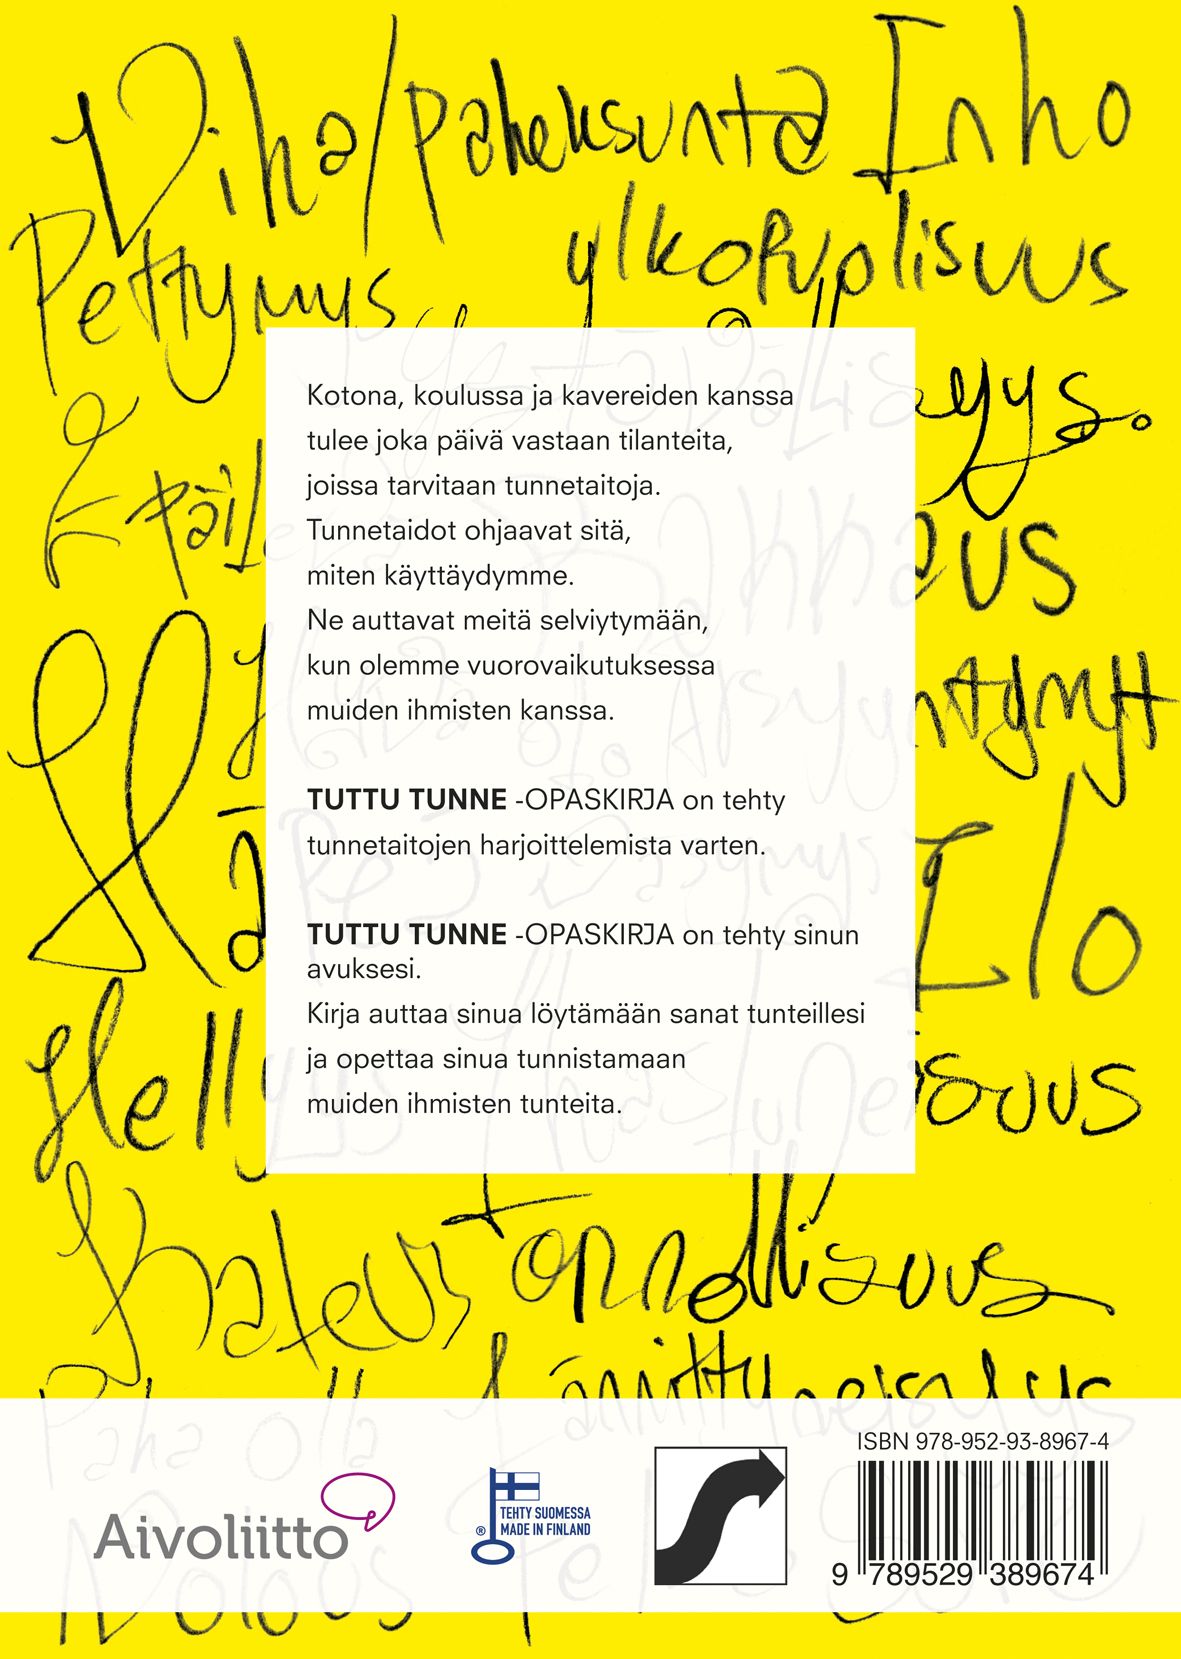 Viha/paheksunta Inho
Pettymys ylkopuolisuus
Kotona, koulussa ja kavereiden kanssa
tulee joka päivä vastaan tilanteita,
joissa tarvitaan tunnetaitoja.
Tunnetaidot ohjaavat sitä,
miten käyttäydymme.
Ne auttavat meitä selviytymään,
kun olemme vuorovaikutuksessa
muiden ihmisten kanssa.
TUTTU TUNNE -OPASKIRJA on tehty
tunnetaitojen harjoittelemista varten.
TUTTU TUNNE -OPASKIRJA on tehty sinun
avuksesi.
Kirja auttaa sinua löytämään sanat tunteillesi
ja opettaa sinua tunnistamaan
muiden ihmisten tunteita.
Ilo
Kateus Onnellisuus
Paha olla
ISBN 978-952-93-8967-4
Aivoliitto
TEHTY SUOMESSA
® MADE IN FINLAND
9 789529 389674